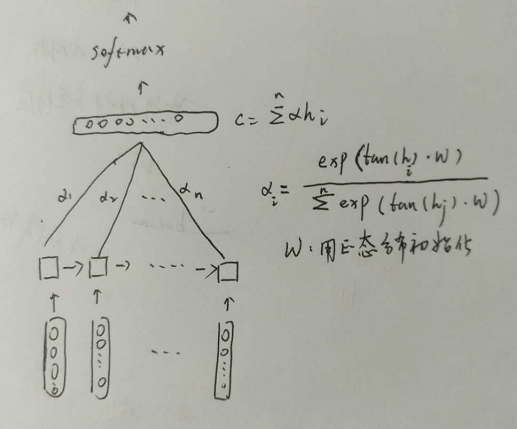 softmax
c = Σⁿ αhᵢ
α₁ α₂ ... αₙ
αᵢ = exp(tan(hᵢ)·W) / Σⁿ exp(tan(hⱼ)·W)
W:用正态分布初始化